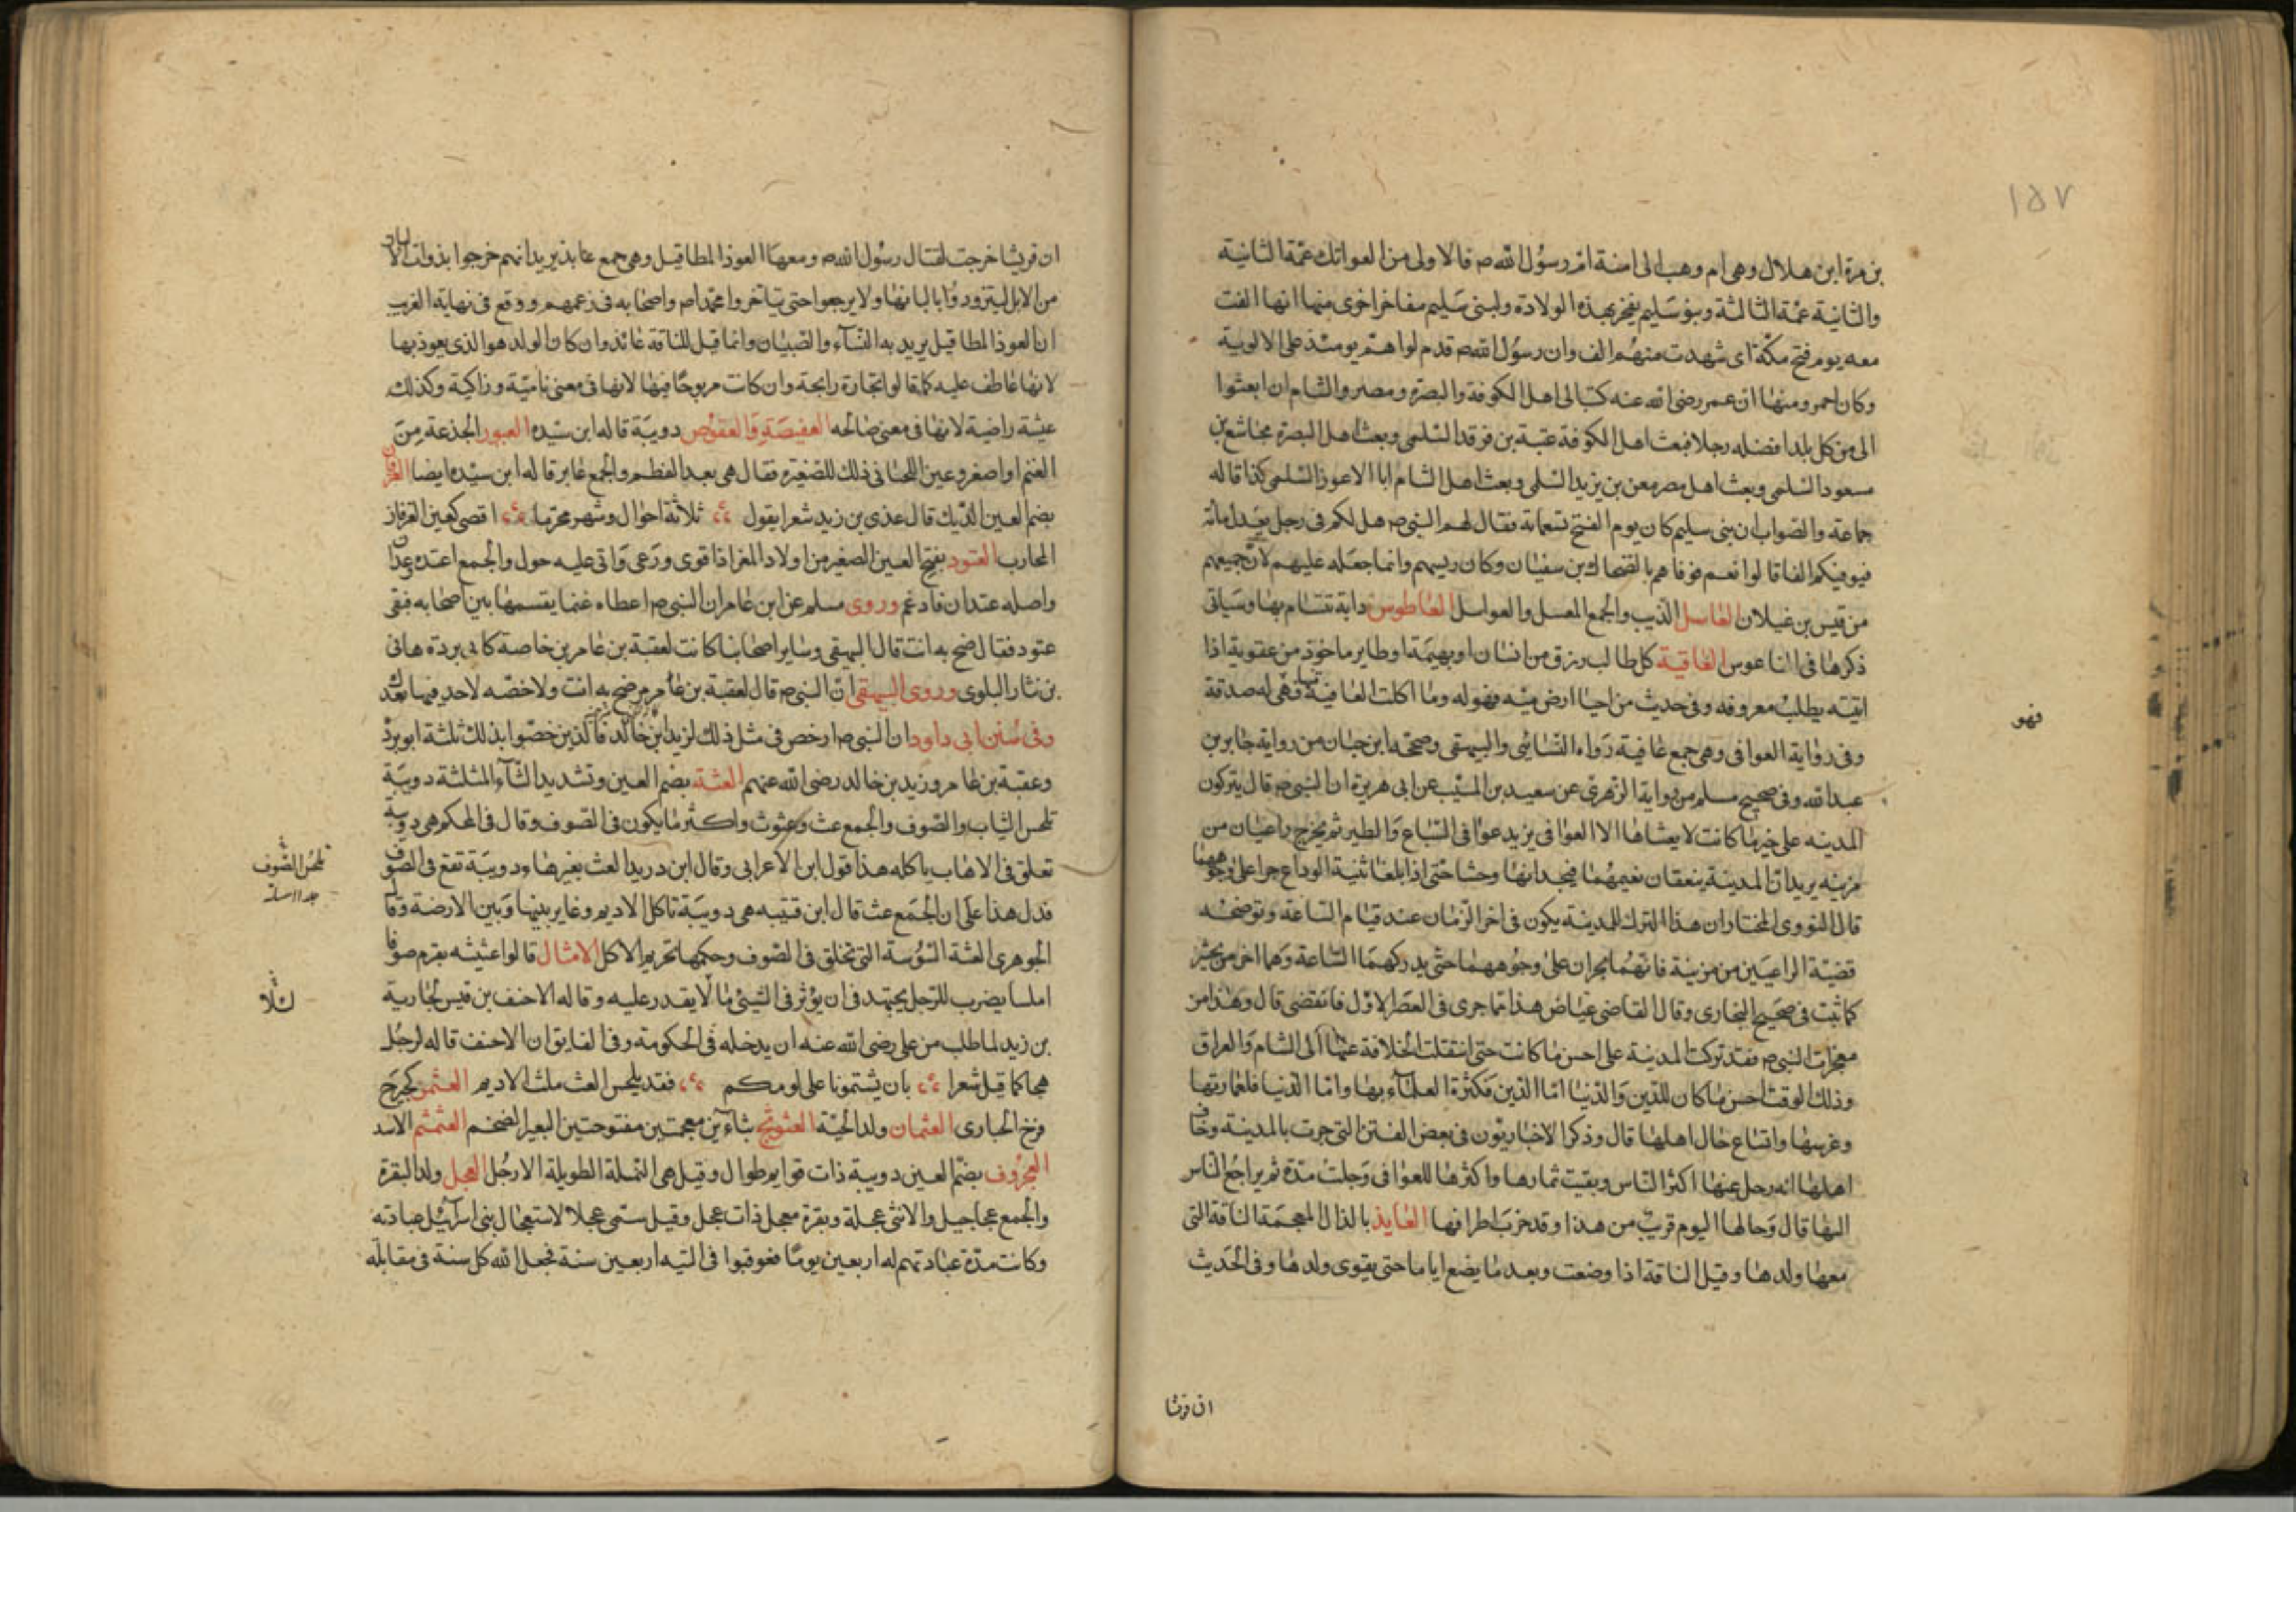 ١٥٧
بن مرة ابن هلال وهى ام وهب ابى امنة ام رسول الله ص فالاولى من العواتك عمّة الثانية
والثانية عمّة الثالثة وبنو سليم يفخر بهذه الولادة ولبنى سليم مفاخر اخرى منها انها الفت
معه يوم فتح مكّة اى شهدت منهم الف وان رسول الله ص قدم لواهم يومئذ على الالوية
وكان احمر ومنها ان عمر رضى الله عنه كتب الى اهل الكوفة والبصرة ومصر والشام ان ابعثوا
الى من كل بلد افضله رجلا فبعث اهل الكوفة عتبة بن فرقد السّلمى وبعث اهل البصرة مجاشع بن
مسعود السّلمى وبعث اهل مصر معن بن يزيد السّلمى وبعث اهل الشام ابا الاعوز السّلمى كذا قاله
جماعة والصّواب ان بنى سليم كان يوم الفتح تسعمائة فقال لهم النبى ص هل لكم فى رجل يعدل مائة
فيوفيكم الفا قالوا نعم فوفاهم بالضّحاك بن سفيان وكان رييسهم وانما جعله عليهم لان جميعهم
من قيس بن غيلان العاسل الذيب والجمع العسل والعواسل العاطوس دابة تتشام بها وسياتى
ذكرها فى الناعوس العافية كل طالب رزق من انسان او بهيمة او طاير ماخوذ من عفوية اذا
اتيته يطلب معروفه وفى حديث من احيا ارض ميته فهوله وما اكلت العافية منها فهى له صدقة
فهو
وفى رواية العوافى وهى جمع عافية رواه النّسائى والبيهقى وصححه ابن حبان من رواية جابر بن
عبد الله وفى صحيح مسلم من رواية الزهرى عن سعيد بن المسيّب عن ابى هريرة ان النبى ص قال يتركون
المدينه على خيرها كانت لا يعشاها الا العوافى يزيد عوافى السّباع والطير ثم يخرج راعيان من
مزينه يريدان المدينة ينعقان بغنمهما فيجدانها وحشا حتى اذا بلغا ثنية الوداع خرا على وجوههما
قال النووى المختار ان هذا الترك للمدينة يكون فى اخر الزمان عند قيام السّاعة وتوضحه
قضيّة الراعيين من مزينة فانهما يخران على وجوههما حتى يدركهما السّاعة وهما اخر من يحشر
كما ثبت فى صحيح البخارى وقال القاضى عياض هذا مما جرى فى العصر الاوّل فانقضى قال وهذا من
معجزات النبى ص فقد تركت المدينة على احسن ما كانت حتى انتقلت الخلافة عنها الى الشام والعراق
وذلك الوقت احسن ما كان للدّين والدّنيا امّا الدّين فكثرة العلماء بها وامّا الدّنيا فلعمارتها
وغرسها واتساع حال اهلها قال وذكر الاخباريون فى بعض الفتن التى جرت بالمدينة وخاف
اهلها انه رحل عنها اكثر النّاس وبقيت ثمارها واكثرها للعوافى وخلت مدّة ثم يراجع الناس
اليها قال وحالها اليوم قريب من هذا وقد خرب اطرافها العايذ بالذال المعجمة الناقة التى
معها ولدها وقيل الناقة اذا وضعت وبعد ما يضع اياما حتى يقوى ولدها وفى الحديث
ان قرشا
ان قريشا خرجت لقتال رسول الله ص ومعها العوذ المطافيل وهى جمع عايذ يريد انهم خرجوا بذوات الالبان
من الابل ليتزودوا بالبانها ولا يرجعوا حتى يتاخروا محمدا ص واصحابه فى زعمهم ووقع فى نهاية الغريب
ان العوذ المطافيل يريد به النّساء والصّبيان وانما قيل للناقة عائذ وان كان الولد هو الذى يعوذ بها
لانها عاطف عليه كما قالوا تجارة رابحة وان كانت مربوحا فيها لانها فى معنى نامية وزاكية وكذلك
عيشة راضية لانها فى معنى صالحه العفيصة والعفوص دويبة قاله ابن سيّده العبور الجذعة من
الغنم او اصغر وعين اللحيانى ذلك للصّغيرة فقال هى بعد الفطم والجمع عابر قاله ابن سيّده ايضا العرفان
بضم العين الدّيك قال عدى بن زيد شعرا يقول ثلاثة احوال وشهر محرّما اقصى كعين العرفان
المحارب العتود بفتح العين الصغير من اولاد المعز اذا قوى ورعى واتى عليه حول والجمع اعتده وعدان
واصله عتدان فادغم وروى مسلم عن ابن عامر ان النبى ص اعطاه غنما يقسمها بين اصحابه فبقى
عتود فقال ضح به انت قال البيهقى وساير اصحابنا كانت لعقبة بن عامر بن خاصة كابى بردة هانى
بن نثار البلوى وروى البيهقى ان النبى ص قال لعقبة بن عامر ضح به انت ولا رخصه لاحد فيها بعدك
وفى سنن ابى داود ان النبى ص ارخص فى مثل ذلك لزيد ابن خالد فالذين خصّوا بذلك ثلثة ابو بردة
وعقبة بن عامر وزيد بن خالد رضى الله عنهم العثة بضم العين وتشديد الثّاء المثلثة دويبّة
تلحس الثياب والصّوف والجمع عث وعثوث واكثر ما يكون فى الصّوف وقال فى المحكم هى دويبة
تعلق فى الاهاب ياكله هذا قول ابن الاعرابى وقال ابن دريد العث بغير هاء دويبّة تقع فى الصّوف
تلحس الصّوف
فدل هذا على ان الجمع عث قال ابن قتيبه هى دويبّة تاكل الاديم وغاير بينها وبين الارضة وقال
الجوهرى العثة السّوسة التى تخلق فى الصّوف وحكمها تحريم الاكل الامثال قالوا عثيثه يقرم صوفا
املسا يضرب للرّجل يجتهد فى ان يؤثر فى الشيئ ما لا يقدر عليه وقاله الاحنف بن قيس لجارية
بن زيد لما طلب من على رضى الله عنه ان يدخله فى الحكومة وفى الفايق ان الاحنف قاله لرجل
هجا كما قيل شعرا بان يشتمونا على لومكم فقد يلحس العث ملث الاديم العثمن كجرج
فرخ الحبارى العثمان ولد الحيّة العثوثج بثاءين معجمتين مفتوحتين البعير الضخم العثمثم الاسد
العجروف بضم العين دويبة ذات قوايم طوال وقيل هى النملة الطويلة الارجل العجل ولد البقرة
والجمع عجاجيل والانثى عجلة وبقرة معجل ذات عجل وقيل سمى عجلا لاستعجال بنى اسرائيل عبادته
وكانت مدّة عبادتهم له اربعين يوما فعوقبوا فى التيه اربعين سنة فجعل الله كل سنة فى مقابلة